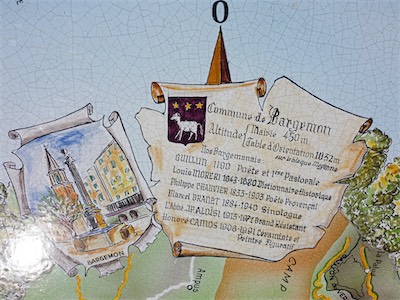 O
Commune de Bargemon
Altitudes Mairie 450m
Table d'Orientation 1052m
Nos Bargemonais
GUILLEN 1190 Poète et 1ère Pastorale
Louis MORERI 1643-1680 Dictionnaire Historique
Philippe CHAUVIER 1833-1903 Poète Provençal
Marcel GRANET 1884-1940 Sinologue
L'Abbé JP. ALOÏSI 1915-1977 Grand Résistant
Honoré CAMOS 1906-1991 Céramiste et
Peintre Figuratif
BARGEMON
Ampus
CAMP